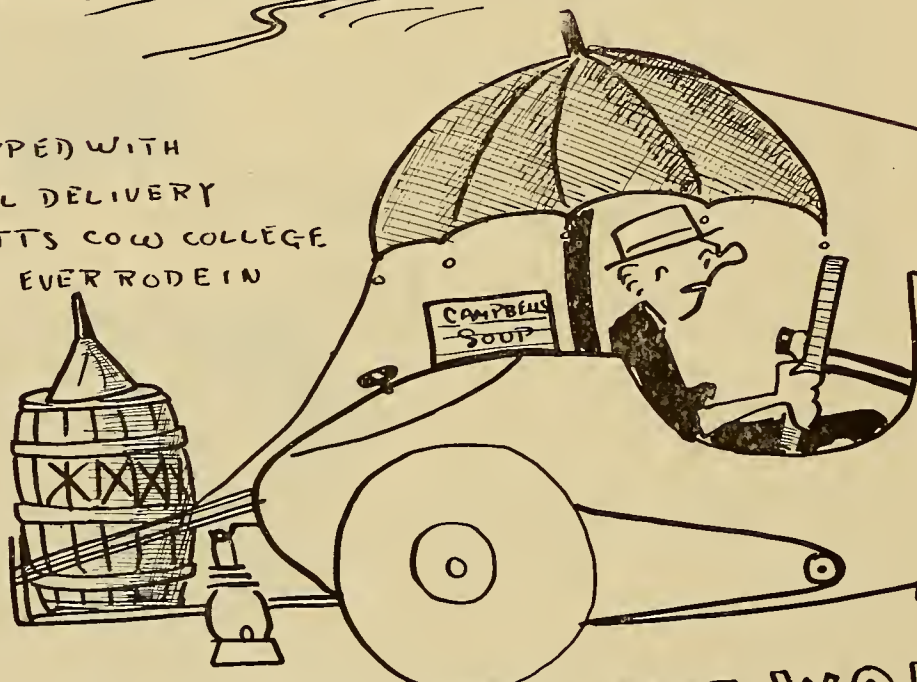 PPED WITH
L DELIVERY
TTS COW COLLEGE
EVER RODE IN
CAMPBELLS
SOUP
XXX